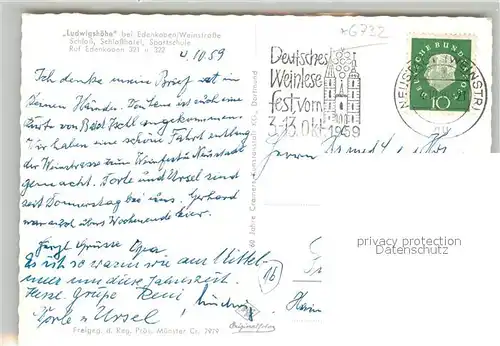 „Ludwigshöhe" bei Edenkoben/Weinstraße
Schloß, Schloßhotel, Sportschule
Ruf Edenkoben 321 u. 322
4.10.59
Ich denke mein Brief ist in
Deinen Händen. Von Lene ist auch eine
Karte von Bad Ischl angekommen.
Wir haben eine schöne Fahrt entlang
der Weinstrasse zum Weinfest Neustadt
gemacht. Dorle und Ursel sind
seit Donnerstag bei uns. Gerhard
war auch übers Wochenende hier.
Herzl. Grüsse Opa
Es ist so warm wie am Mittel-
meer um diese Jahreszeit.
Herzl. Grüße Reni
Dorle u. Ursel
Freigeg. d. Reg. Präs. Münster Cr. 7979
60 Jahre Cramers Kunstanstalt KG., Dortmund
Originalfoto
*6732
Deutsches
Weinlese
fest vom
3.-13.Okt.1959
DEUTSCHE BUNDESPOST
10
NEUSTADT (WEINSTR)
Herrn
16
privacy protection
Datenschutz